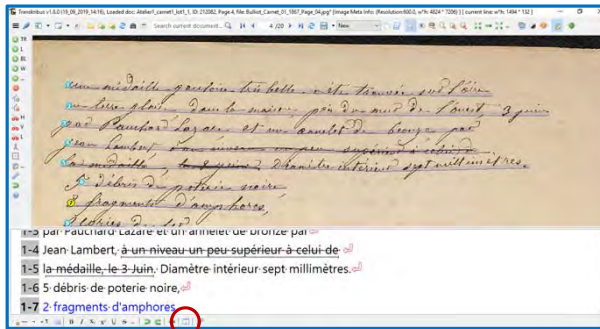 Transkribus v1.8.0 (19_09_2019_14:16), Loaded doc: Atelier1_carnet1_lot1_1, ID: 212082, Page 4, file: Bulliot_Carnet_01_1867_Page_04.jpg
Search current document...
4 /20
New
une médaille gauloise très belle a été trouvée sur l'aire
en terre glaise dans la maison, près du mur de l'ouest, 3 juin
par Pauchard Lazare et un annelet de bronze par
Jean Lambert, à un niveau un peu supérieur à celui de
la médaille, le 3 juin. Diamètre intérieur sept millimètres.
5 débris de poterie noire,
2 fragments d'amphores,
1-3 par Pauchard Lazare et un annelet de bronze par
1-4 Jean Lambert, à un niveau un peu supérieur à celui de
1-5 la médaille, le 3 Juin. Diamètre intérieur sept millimètres.
1-6 5 débris de poterie noire,
1-7 2 fragments d'amphores,